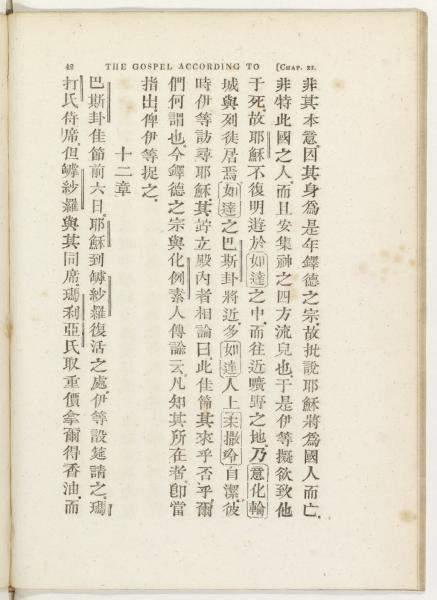 48 THE GOSPEL ACCORDING TO [CHAP. XI.
非其本意.因其身為是年鐸德之宗.故批說耶穌將為國人而亡.
非特此國之人.而且安集神之四方流兒也.于是伊等擬欲致他
于死.故耶穌不復明遊於如達之中.而往近曠野之地.乃意化輪
城.與列徒居焉.如達之巴斯卦將近.多如達人上柔撒冷自潔.彼
時伊等訪尋耶穌.其立殿內者相論曰.此佳節其來乎否乎.爾
們何謂也.今鐸德之宗與化例素人傳論云.凡知其所在者.即當
指出.俾伊等捉之.
十二章
巴斯卦佳節前六日.耶穌到罅紗羅復活之處.伊等設筵請之.瑪
打氏侍席.但罅紗羅與其同席.瑪利亞氏取重價拿爾得香油.而